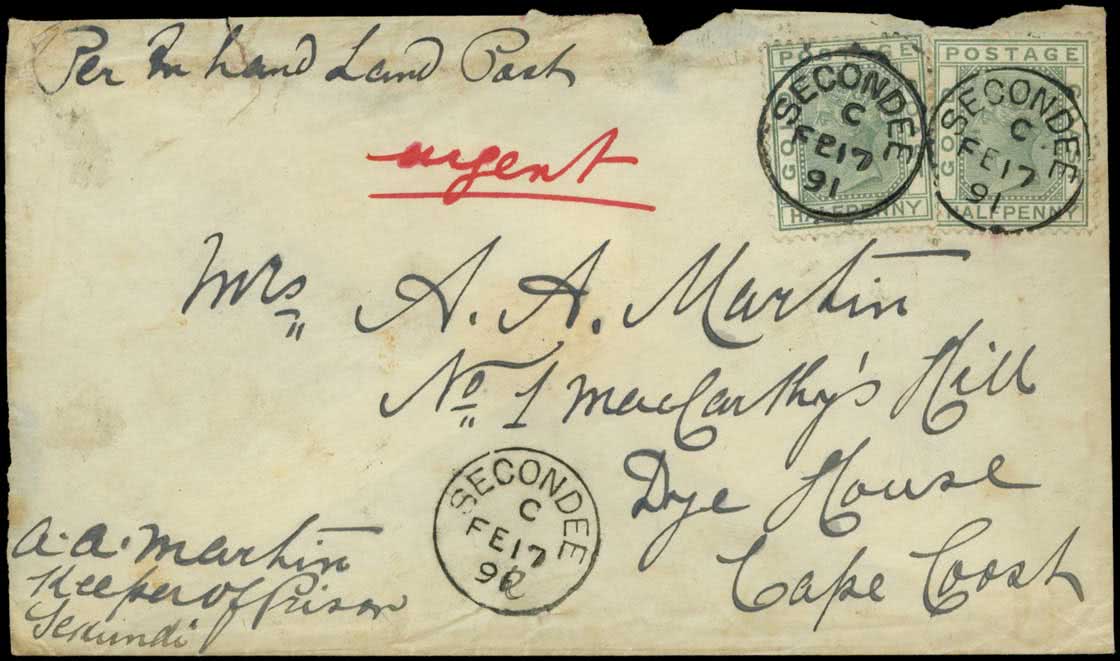 Per In land Land Post
urgent
POSTAGE
GO
HALFPENNY
SECONDEE
C
FE 17
91
POSTAGE
GO
HALFPENNY
SECONDEE
C
FE 17
91
Mrs A. A. Martin
No 1 MacCarthy's Hill
Dye House
Cape Coast
SECONDEE
C
FE 17
a. a. Martin
Keeper of Prison
Sekundi